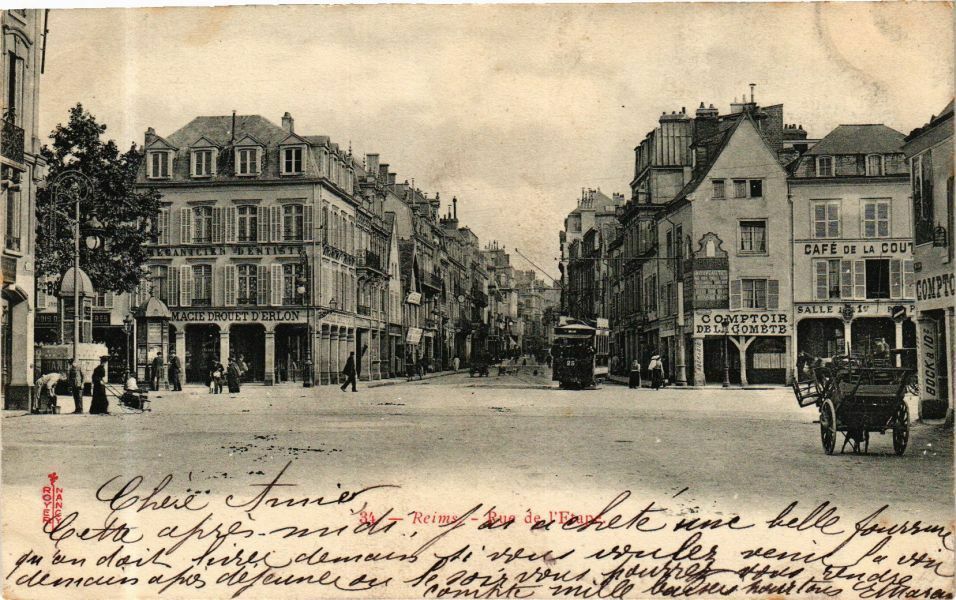 HERAPIE DENTISTE
MACIE DROUET D'ERLON
COMPTOIR
DE LA COMÈTE
CAFÉ DE LA COUT
SALLE AU 1er
COMPTO
BOCK à 10c
25
ROYER
NANCY
34 - Reims. - Rue de l'Etape
Chère Amie
Cette après-midi, j'ai acheté une belle fourrure
qu'on doit livrer demain si vous voulez venir la voir
demain après déjeuner ou le soir vous pourrez vous rendre
compte mille baisers pour tous